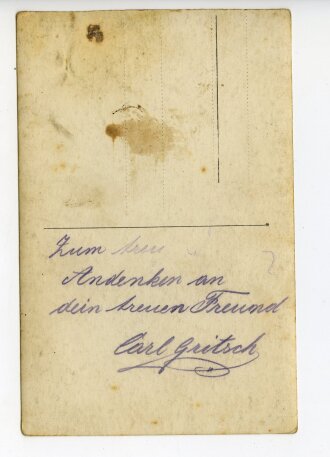 Zum treu
Andenken an
dein treuen Freund
Carl Gritsch